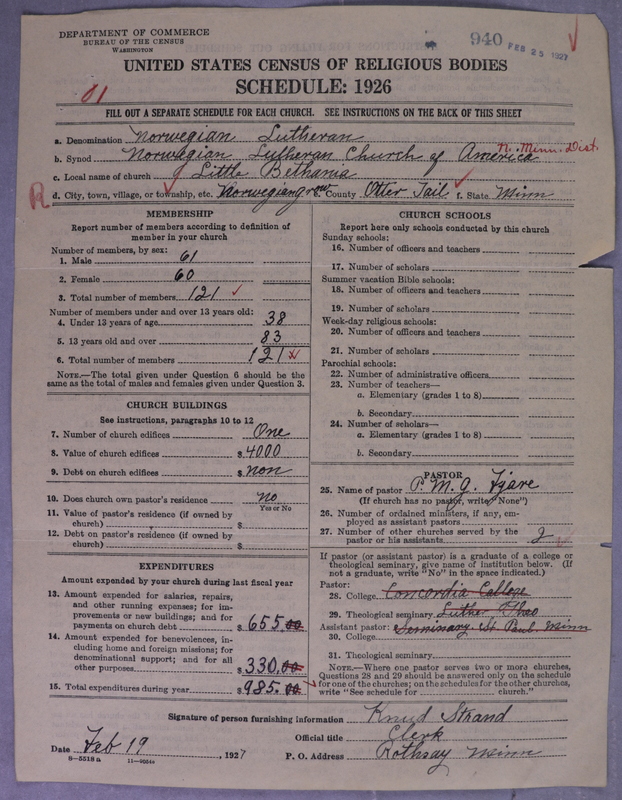 DEPARTMENT OF COMMERCE
BUREAU OF THE CENSUS
WASHINGTON
940 FEB 25 1927
UNITED STATES CENSUS OF RELIGIOUS BODIES
SCHEDULE: 1926
FILL OUT A SEPARATE SCHEDULE FOR EACH CHURCH. SEE INSTRUCTIONS ON THE BACK OF THIS SHEET
a. Denomination Norwegian Lutheran
b. Synod Norwegian Lutheran Church of America N. Minn. Dist.
c. Local name of church Little Bethania
R d. City, town, village, or township, etc. Norwegian grove County Otter Tail f. State Minn
MEMBERSHIP
Report number of members according to definition of member in your church
Number of members, by sex:
1. Male 61
2. Female 60
3. Total number of members 121
Number of members under and over 13 years old:
4. Under 13 years of age 38
5. 13 years old and over 83
6. Total number of members 121
NOTE.—The total given under Question 6 should be the same as the total of males and females given under Question 3.
CHURCH BUILDINGS
See instructions, paragraphs 10 to 12
7. Number of church edifices One
8. Value of church edifices $ 4000
9. Debt on church edifices $ non
10. Does church own pastor's residence no
Yes or No
11. Value of pastor's residence (if owned by church) $
12. Debt on pastor's residence (if owned by church) $
EXPENDITURES
Amount expended by your church during last fiscal year
13. Amount expended for salaries, repairs, and other running expenses; for improvements or new buildings; and for payments on church debt $ 655.00
14. Amount expended for benevolences, including home and foreign missions; for denominational support; and for all other purposes $ 330.00
15. Total expenditures during year $ 985.00
CHURCH SCHOOLS
Report here only schools conducted by this church
Sunday schools:
16. Number of officers and teachers
17. Number of scholars
Summer vacation Bible schools:
18. Number of officers and teachers
19. Number of scholars
Week-day religious schools:
20. Number of officers and teachers
21. Number of scholars
Parochial schools:
22. Number of administrative officers
23. Number of teachers—
a. Elementary (grades 1 to 8)
b. Secondary
24. Number of scholars—
a. Elementary (grades 1 to 8)
b. Secondary
PASTOR
25. Name of pastor P. M. G. Fjare
(If church has no pastor, write "None")
26. Number of ordained ministers, if any, employed as assistant pastors
27. Number of other churches served by the pastor or his assistants 2
If pastor (or assistant pastor) is a graduate of a college or theological seminary, give name of institution below. (If not a graduate, write "No" in the space indicated.)
Pastor:
28. College Concordia College
29. Theological seminary Luther Theo
Assistant pastor: Seminary St. Paul Minn
30. College
31. Theological seminary
NOTE.—Where one pastor serves two or more churches, Questions 28 and 29 should be answered only on the schedule for one of the churches; on the schedules for the other churches, write "See schedule for church."
Signature of person furnishing information Knud Strand
Official title Clerk
Date Feb 19, 1927 P. O. Address Rothsay Minn
8—5518 a